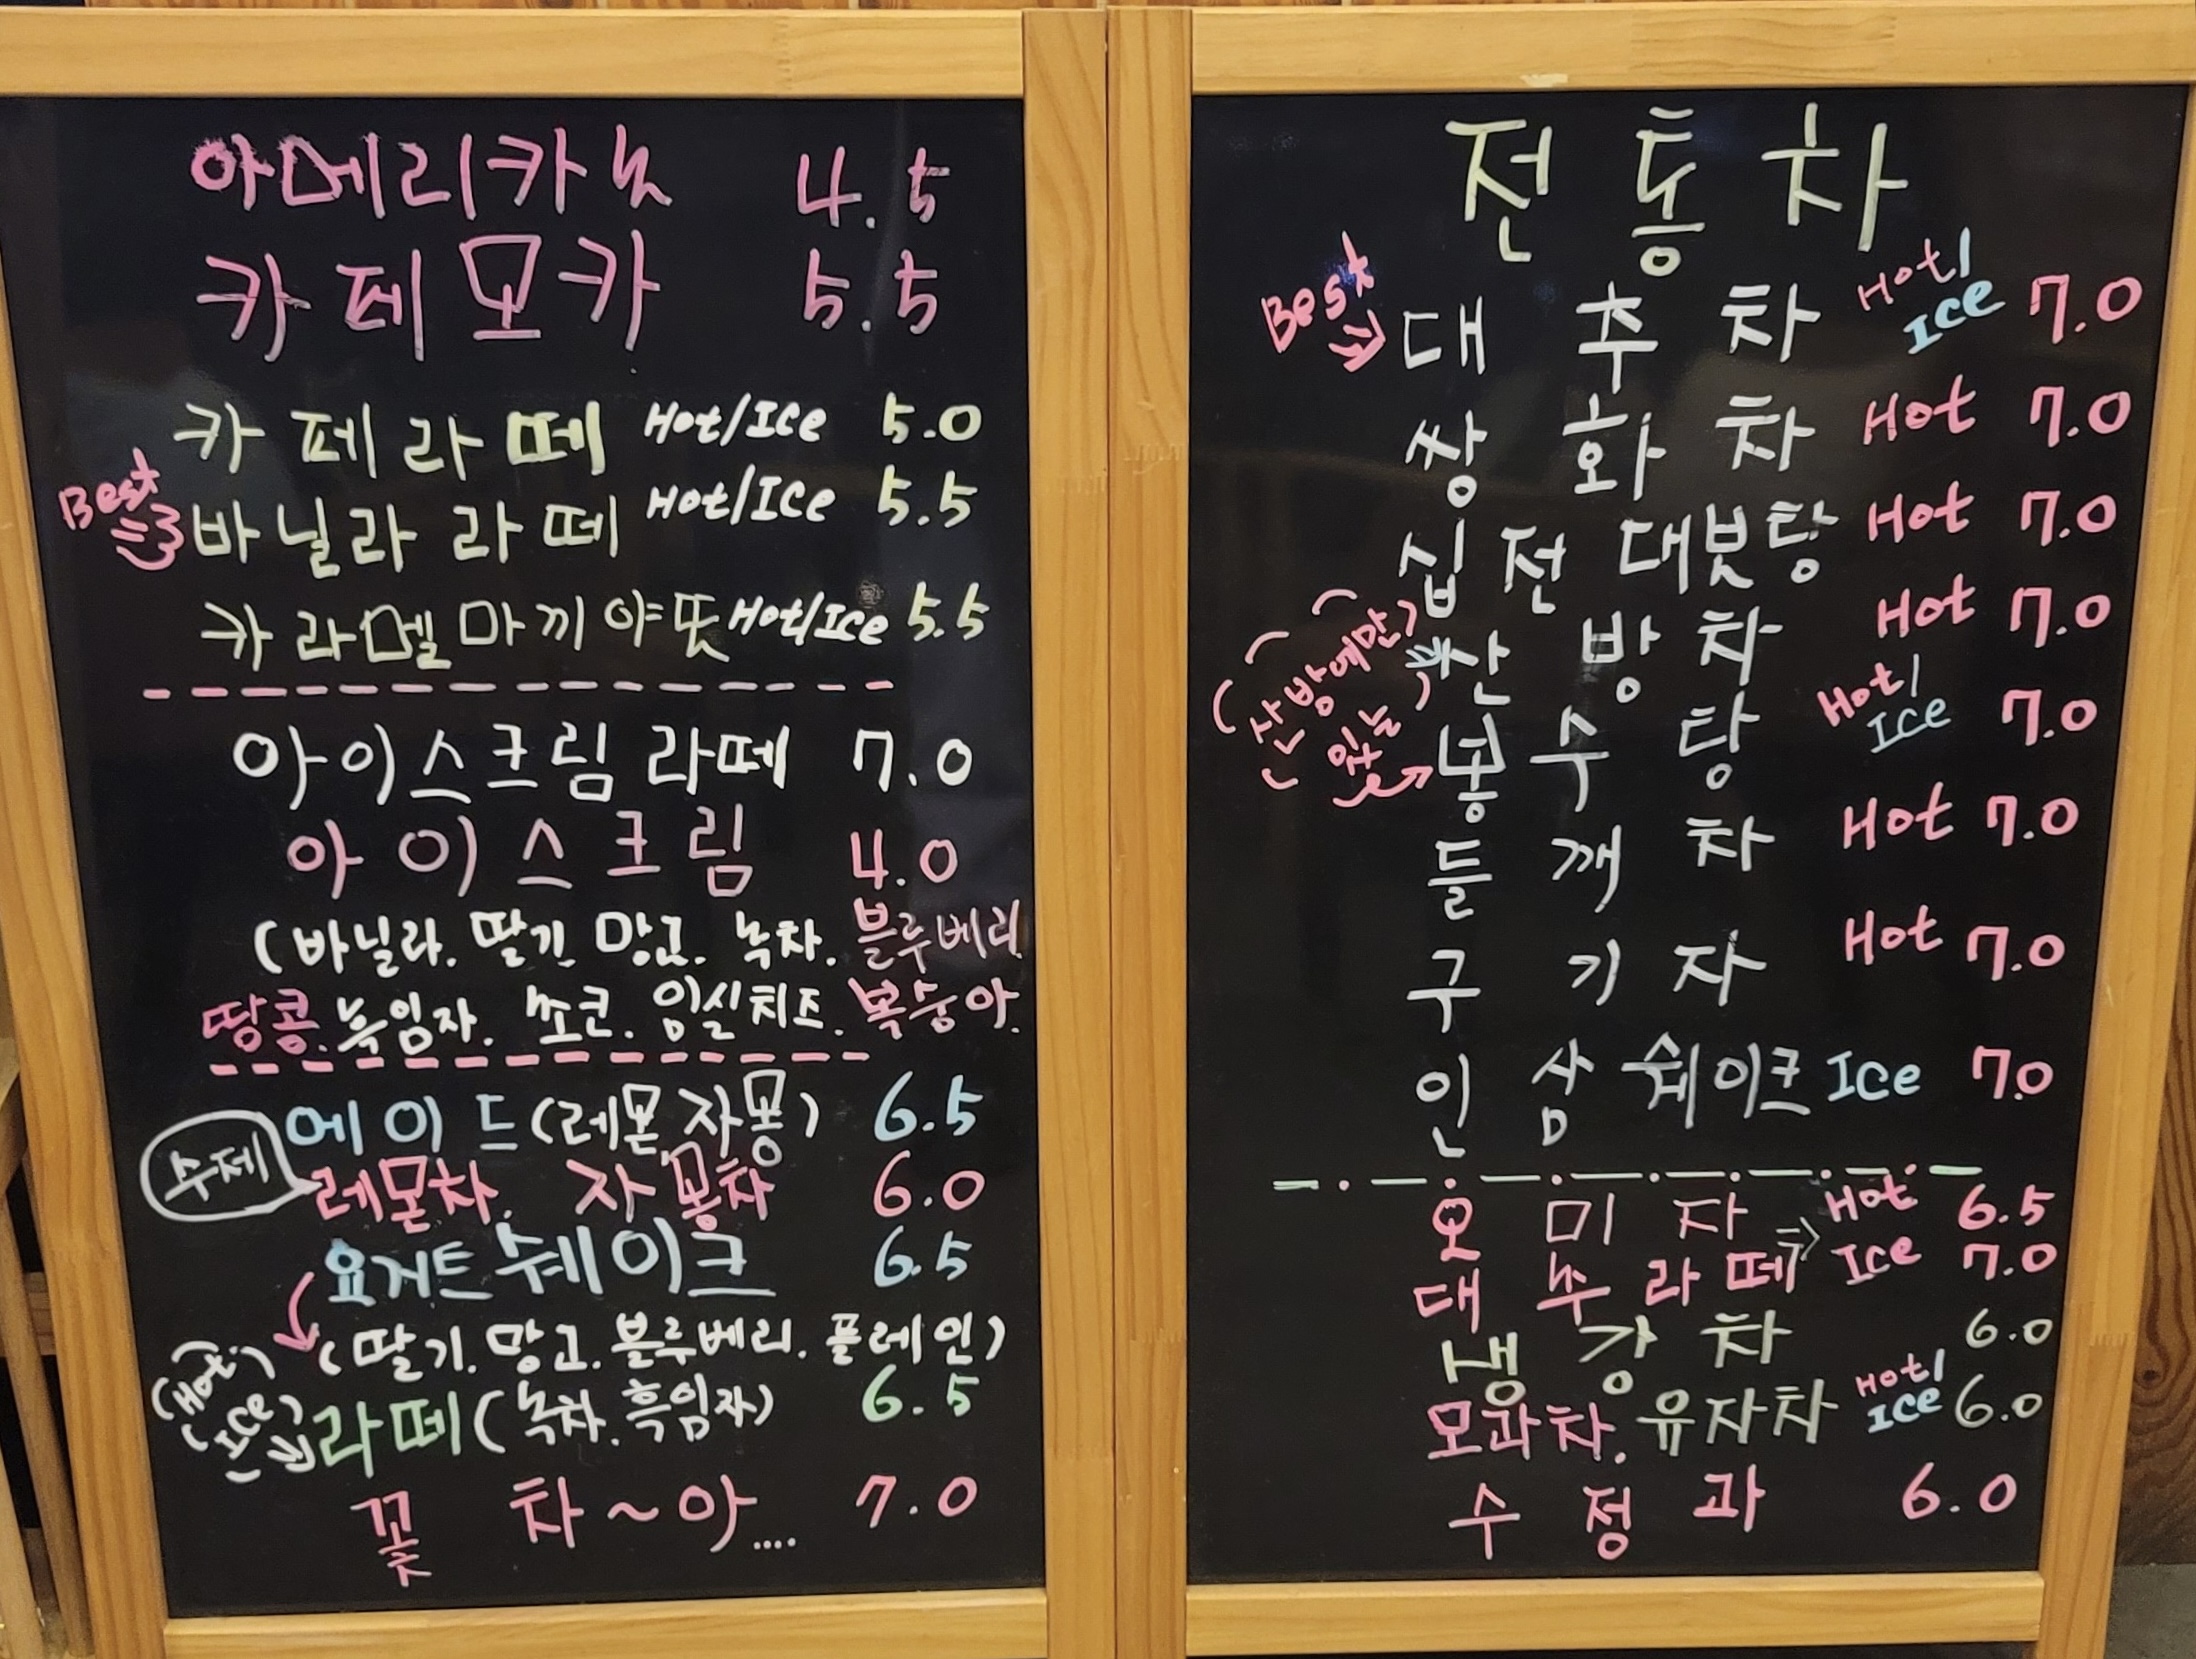 아메리카노 4.5
카페모카 5.5
카페라떼 Hot/Ice 5.0
Best
바닐라라떼 Hot/Ice 5.5
카라멜마끼야또 Hot/Ice 5.5
아이스크림라떼 7.0
아이스크림 4.0
(바닐라. 딸기. 망고. 녹차. 블루베리
땅콩. 흑임자. 쵸코. 임실치즈. 복숭아.
수제
에이드(레몬, 자몽) 6.5
레몬차. 자몽차 6.0
요거트쉐이크 6.5
(딸기. 망고. 블루베리. 플레인)
(Hot.)
(Ice)
라떼(녹차. 흑임자) 6.5
꽃차~아.... 7.0
전통차
Best
대추차 Hot/Ice 7.0
쌍화차 Hot 7.0
십전대봇탕 Hot 7.0
(산방에만)
(있는)
산방차 Hot 7.0
봉수탕 Hot/Ice 7.0
들깨차 Hot 7.0
구기자 Hot 7.0
인삼쉐이크 Ice 7.0
오미자 Hot 6.5
대추라떼 Ice 7.0
생강차 6.0
모과차. 유자차 Hot/Ice 6.0
수정과 6.0